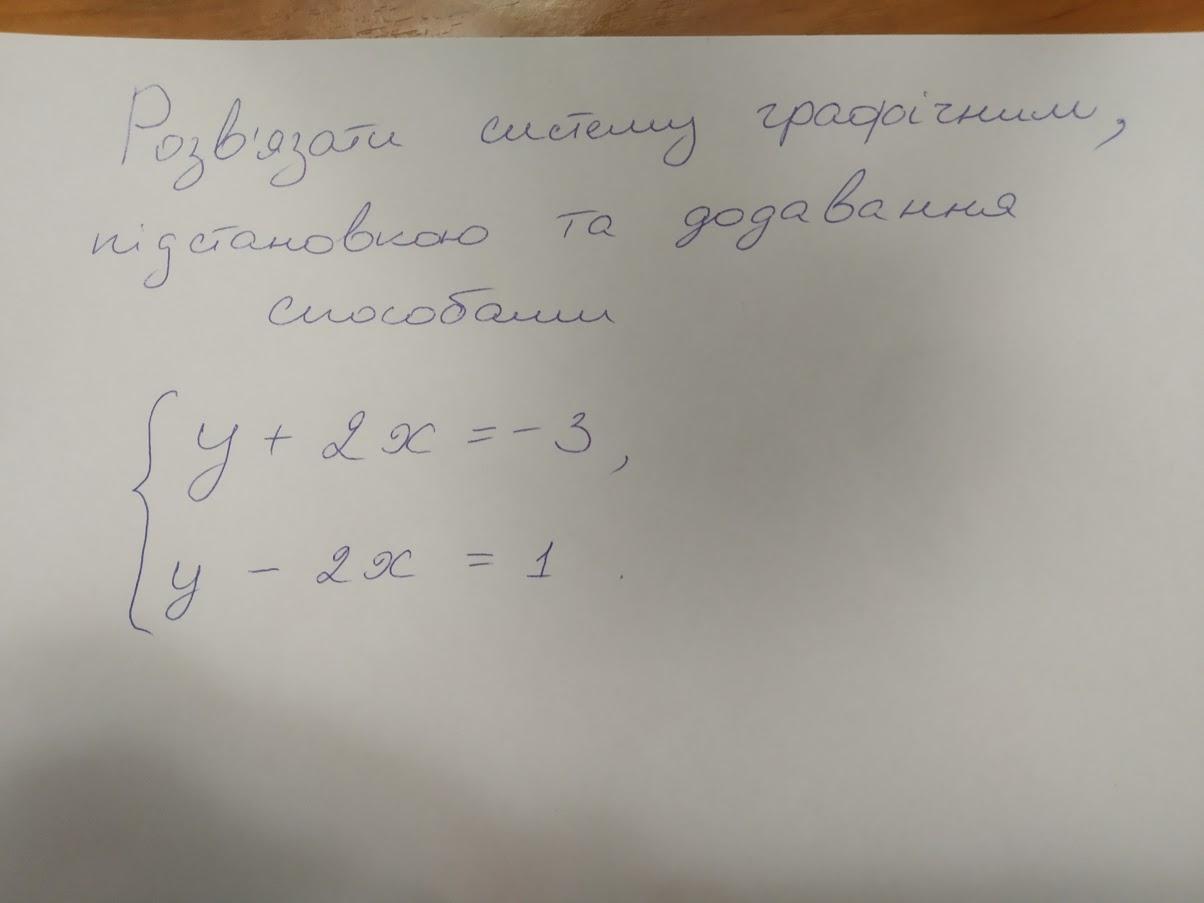 Розв'язати систему графічним,
підстановкою та додавання
способами
{ y + 2x = -3,
y - 2x = 1 .